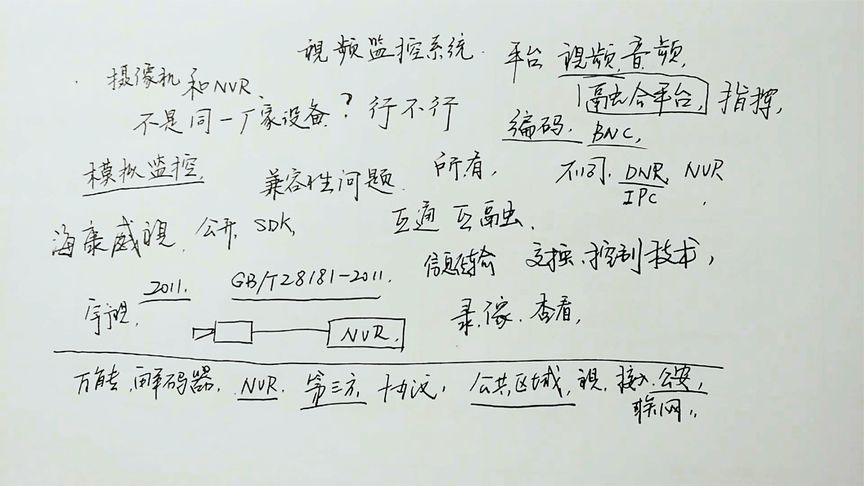 視频监控系统. 平台 視频,音频,
摄像机和NVR、 融合平台, 指挥,
不是同一厂家设备? 行不行 编码. BNC,
模拟监控, 兼容性问题. 所有, 不同. DNR, NVR
IPC
海康威視. 公开 SDK, 互通 互融.
2011. GB/T28181-2011. 信息传输 交换.控制技术,
宇视. NVR. 录像.查看,
万能.解码器. NVR. 第三方. 协议, 公共区域,視,接入.公安,
联网,,